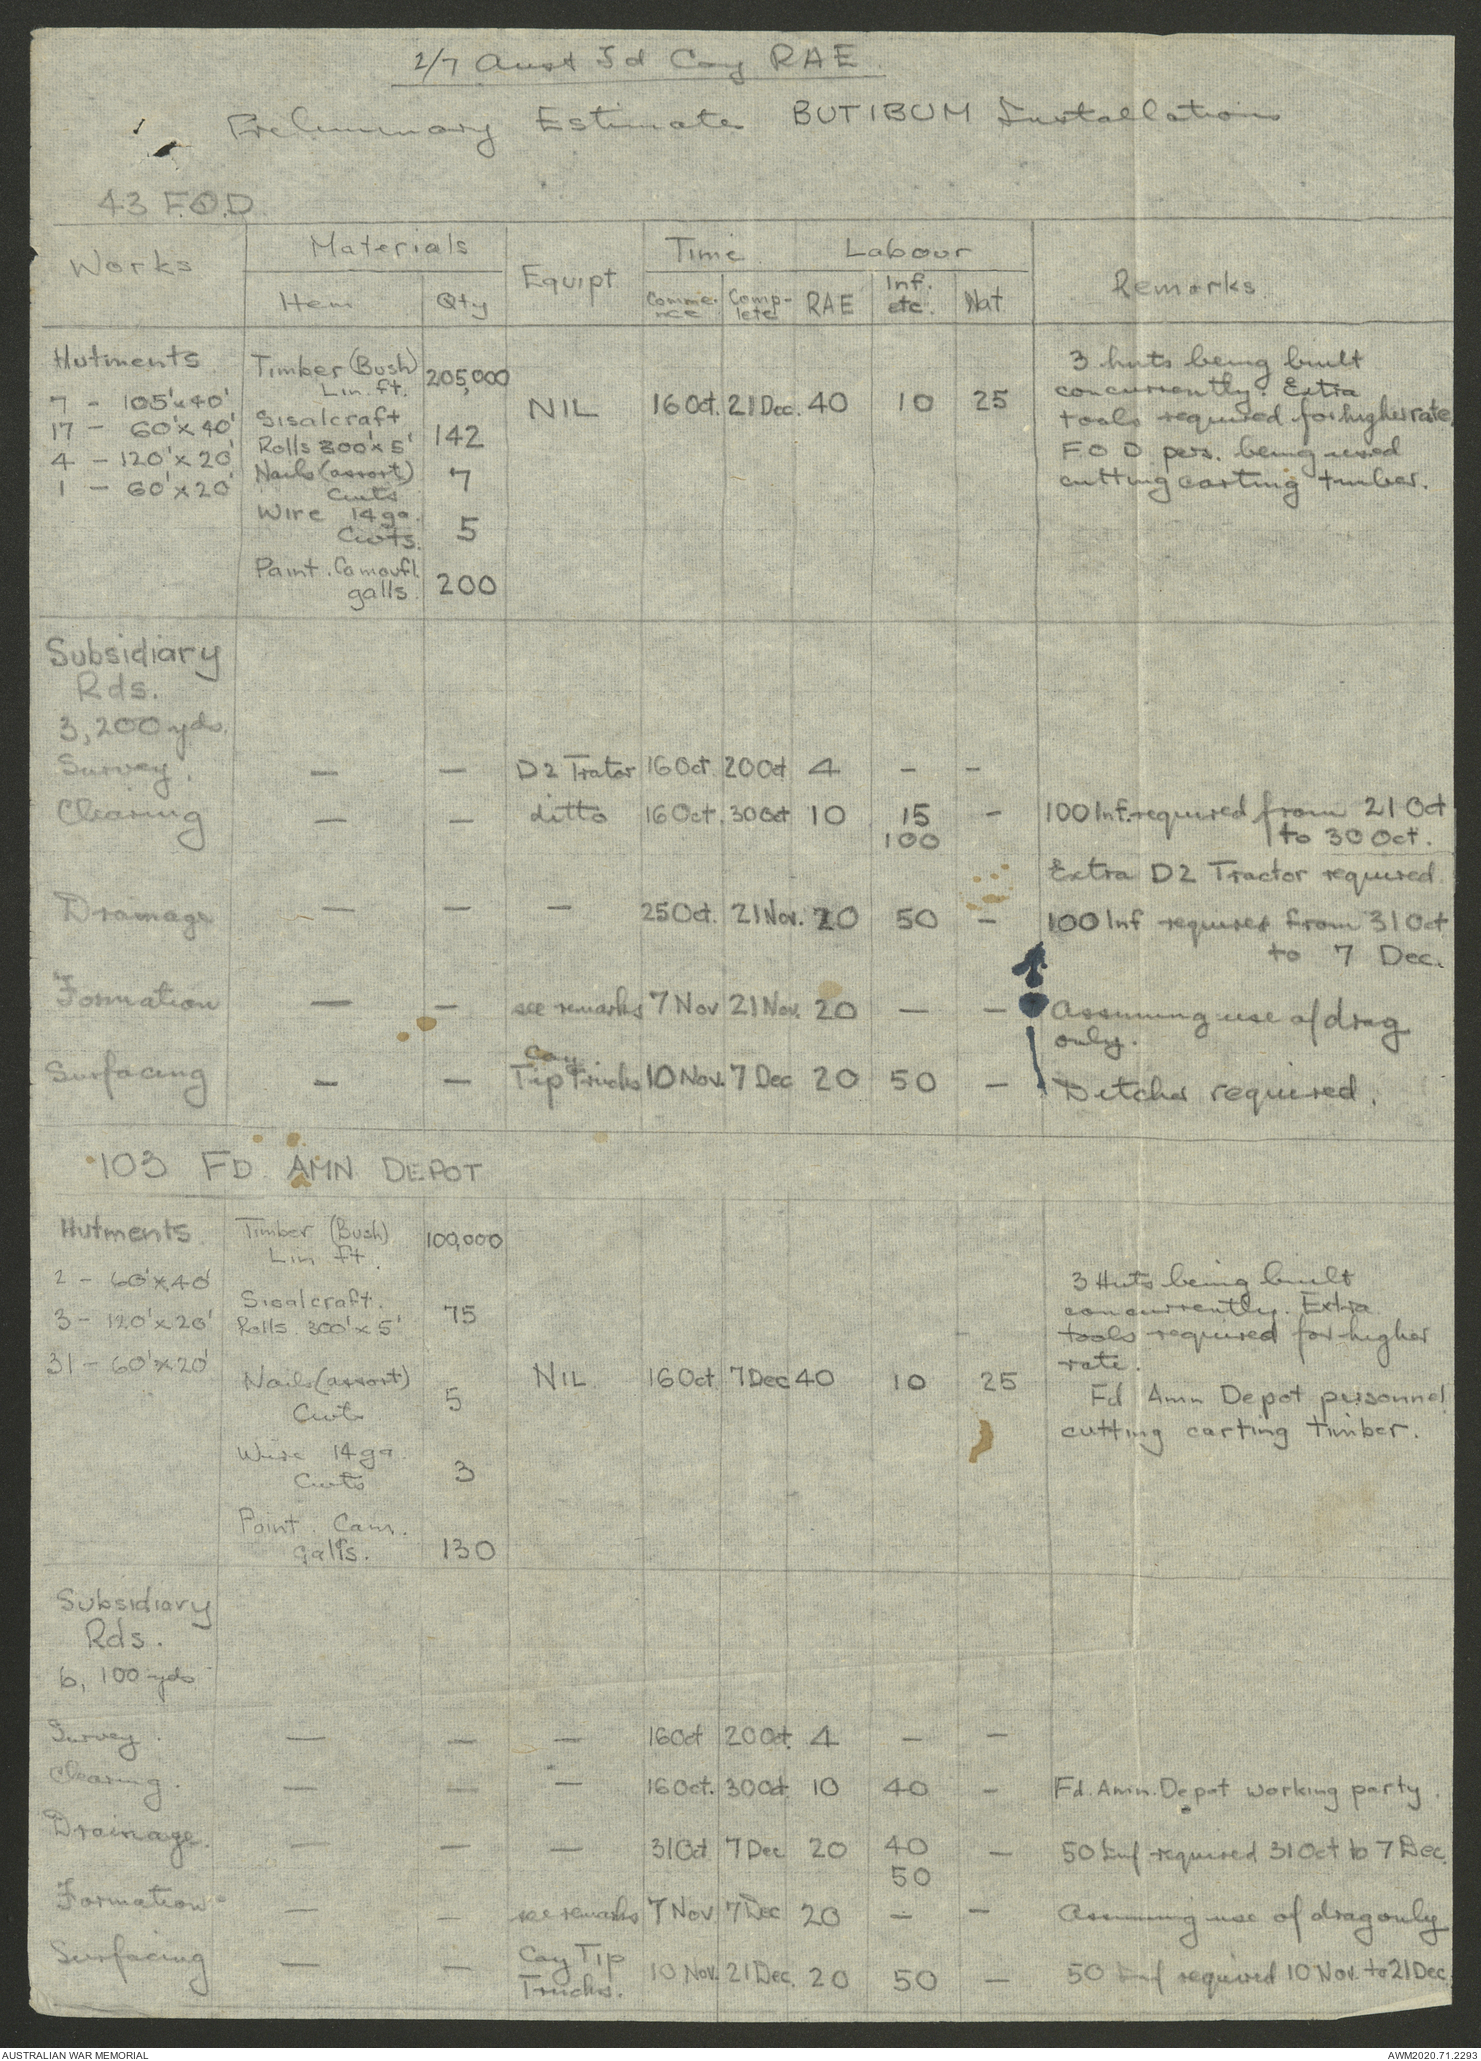 2/7 Aust Fd Coy RAE.
Preliminary Estimates BUTIBUM Installations
43 F.O.D.
Works Materials Equipt Time Labour Remarks
Item Qty Comme-nce Comp-lete RAE Inf. etc. Nat
Hutments
7 - 105'x40'
17 - 60'x40'
4 - 120'x20'
1 - 60'x20'
Timber (Bush)
Lin. ft. 205,000
Sisalcraft
Rolls 300'x5' 142
Nails (assort)
Cwts 7
Wire 14ga.
Cwts. 5
Paint. Camoufl.
galls. 200
NIL 16 Oct. 21 Dec. 40 10 25
3 huts being built
concurrently. Extra
tools required for higher rate.
F O D pers. being used
cutting carting timber.
Subsidiary
Rds.
3,200 yds.
Survey. — — D2 Trator 16 Oct. 20 Oct 4 – –
Clearing — — ditto 16 Oct. 30 Oct 10 15 – 100 Inf. required from 21 Oct
100 to 30 Oct.
Extra D2 Tractor required.
Drainage — — — 25 Oct. 21 Nov. 20 50 – 100 Inf required from 31 Oct
to 7 Dec.
Formation — — see remarks 7 Nov 21 Nov. 20 — – Assuming use of drag
only.
Surfacing – — Coy.
Tip Trucks 10 Nov. 7 Dec 20 50 – Ditcher required.
103 FD. AMN DEPOT
Hutments.
2 - 60'x40'
3 - 120'x20'
31 - 60'x20'
Timber (Bush)
Lin ft. 100,000
Sisalcraft.
Rolls. 300'x5' 75
Nails (assort)
Cwts 5
Wire 14ga.
Cwts 3
Paint. Cam.
galls. 130
NIL. 16 Oct 7 Dec 40 10 25
3 Huts being built
concurrently. Extra
tools required for higher
rate.
Fd Amn Depot personnel
cutting carting timber.
Subsidiary
Rds.
6,100 yds
Survey. — — — 16 Oct 20 Oct. 4 — —
Clearing. — — — 16 Oct. 30 Oct. 10 40 – Fd. Amn. Depot working party.
Drainage. — — — 31 Oct 7 Dec 20 40 – 50 Inf required 31 Oct to 7 Dec.
50
Formation – — – see remarks 7 Nov 7 Dec 20 – – Assuming use of drag only
Surfacing — — Coy Tip
Trucks. 10 Nov. 21 Dec. 20 50 – 50 Inf required 10 Nov. to 21 Dec
AUSTRALIAN WAR MEMORIAL AWM2020.71.2293